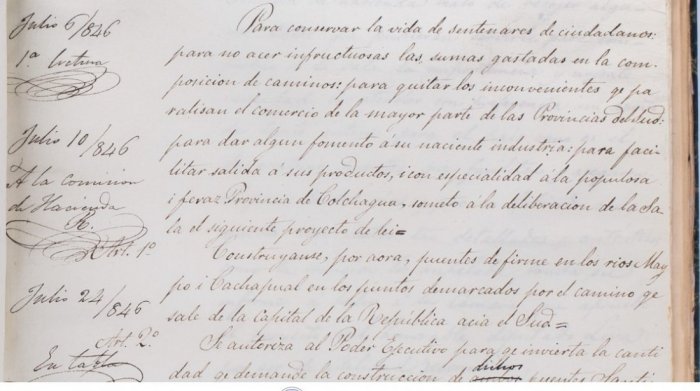 Julio 6/846
1ª lectura
Julio 10/846
A la comision
de Hacienda
R.
Art. 1º
Julio 24/846
Art. 2º
En tabla
Para conservar la vida de sentenares de ciudadanos:
para no acer infructuosas las sumas gastadas en la com-
posicion de caminos: para quitar los inconvenientes qe pa
ralisan el comercio de la mayor parte de las Provincias del Sud:
para dar algun fomento á su naciente industria: para faci-
litar salida á sus productos, i con especialidad á la populosa
i feraz Provincia de Colchagua, someto á la deliberacion de la Sa-
la el siguiente proyecto de lei=
Construyanse, por aora, puentes de firme en los rios May
po i Cachapual en los puntos demarcados por el camino qe
sale de la Capital de la República acia el Sud=
Se autoriza al Poder Ejecutivo para qe invierta la canti
dad qe demande la construccion de dichos puentes